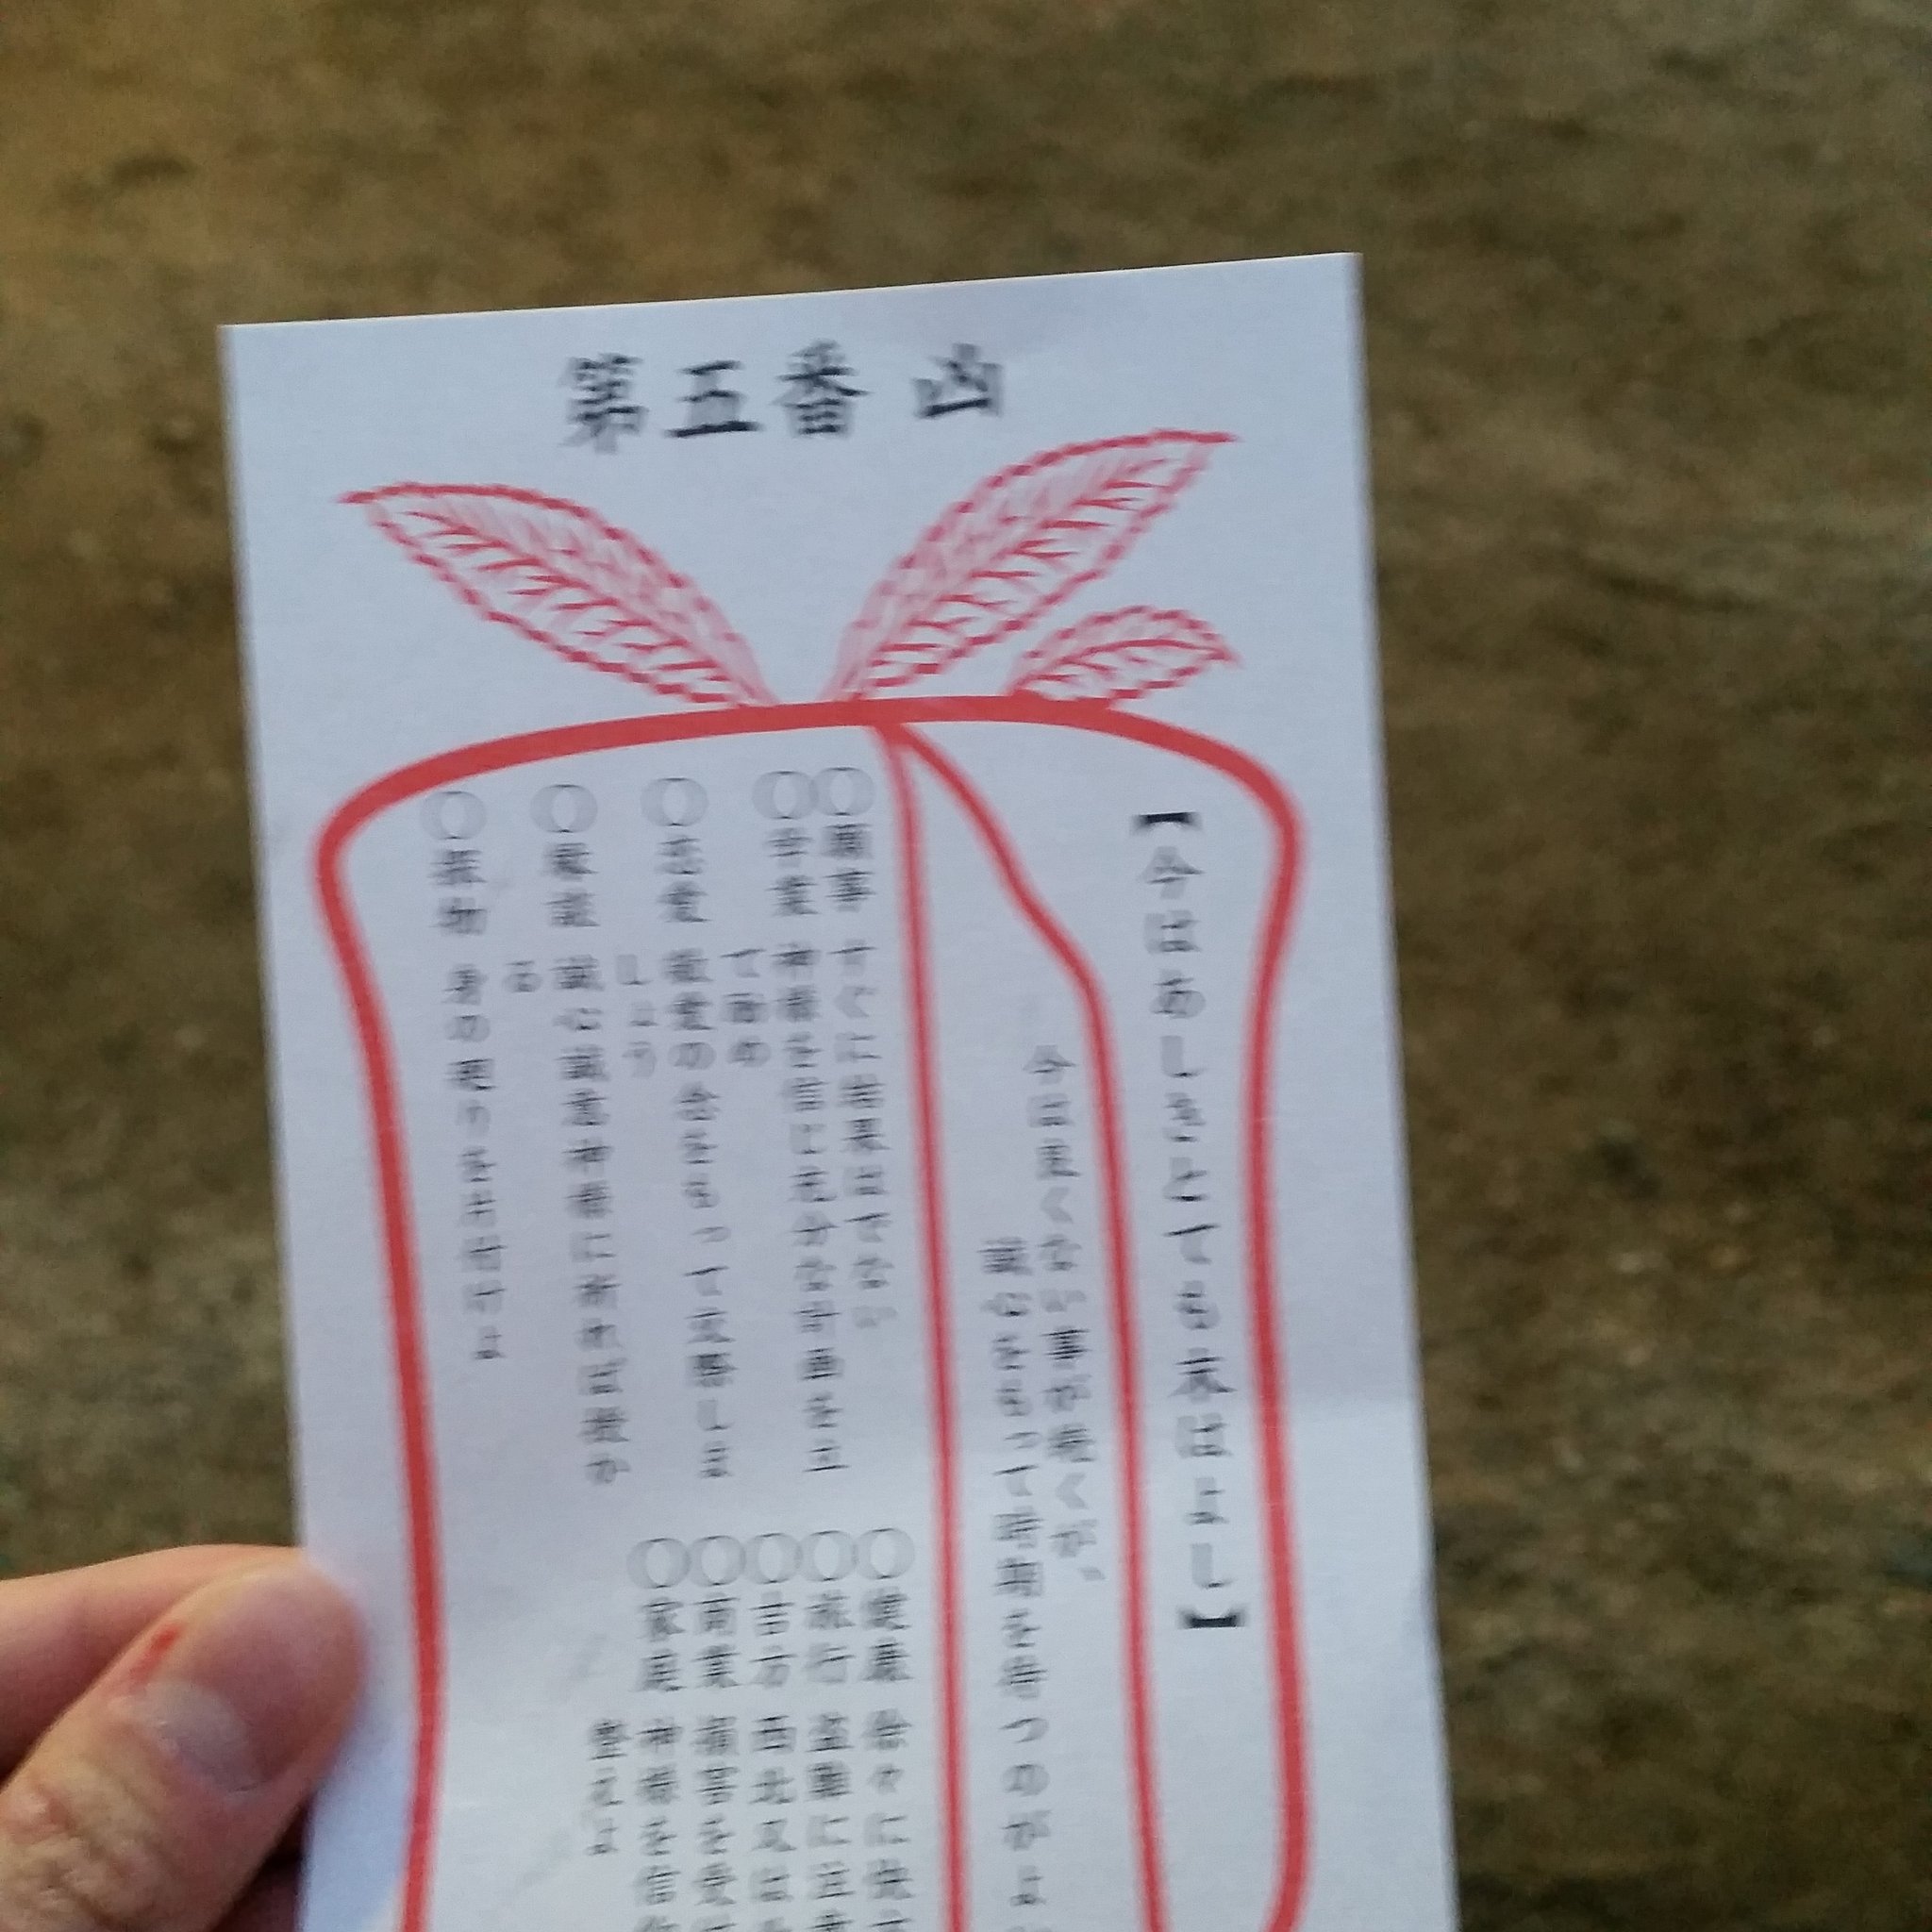 第五番 凶
【今はあしきとても末はよし】
今は良くない事が続くが、
誠心をもって時期を待つのがよ
○願事 すぐに結果はでない
○学業 神様を信じ充分な計画を立
て励め
○恋愛 慈愛の念をもって交際しま
しょう
○縁談 誠心誠意神様に祈れば良縁が
ある
○
○健康 徐々に快
○旅行 盗難に注意
○吉方 西北又は
○商業 損害を受け
○家庭 神様を信仰
整えよ